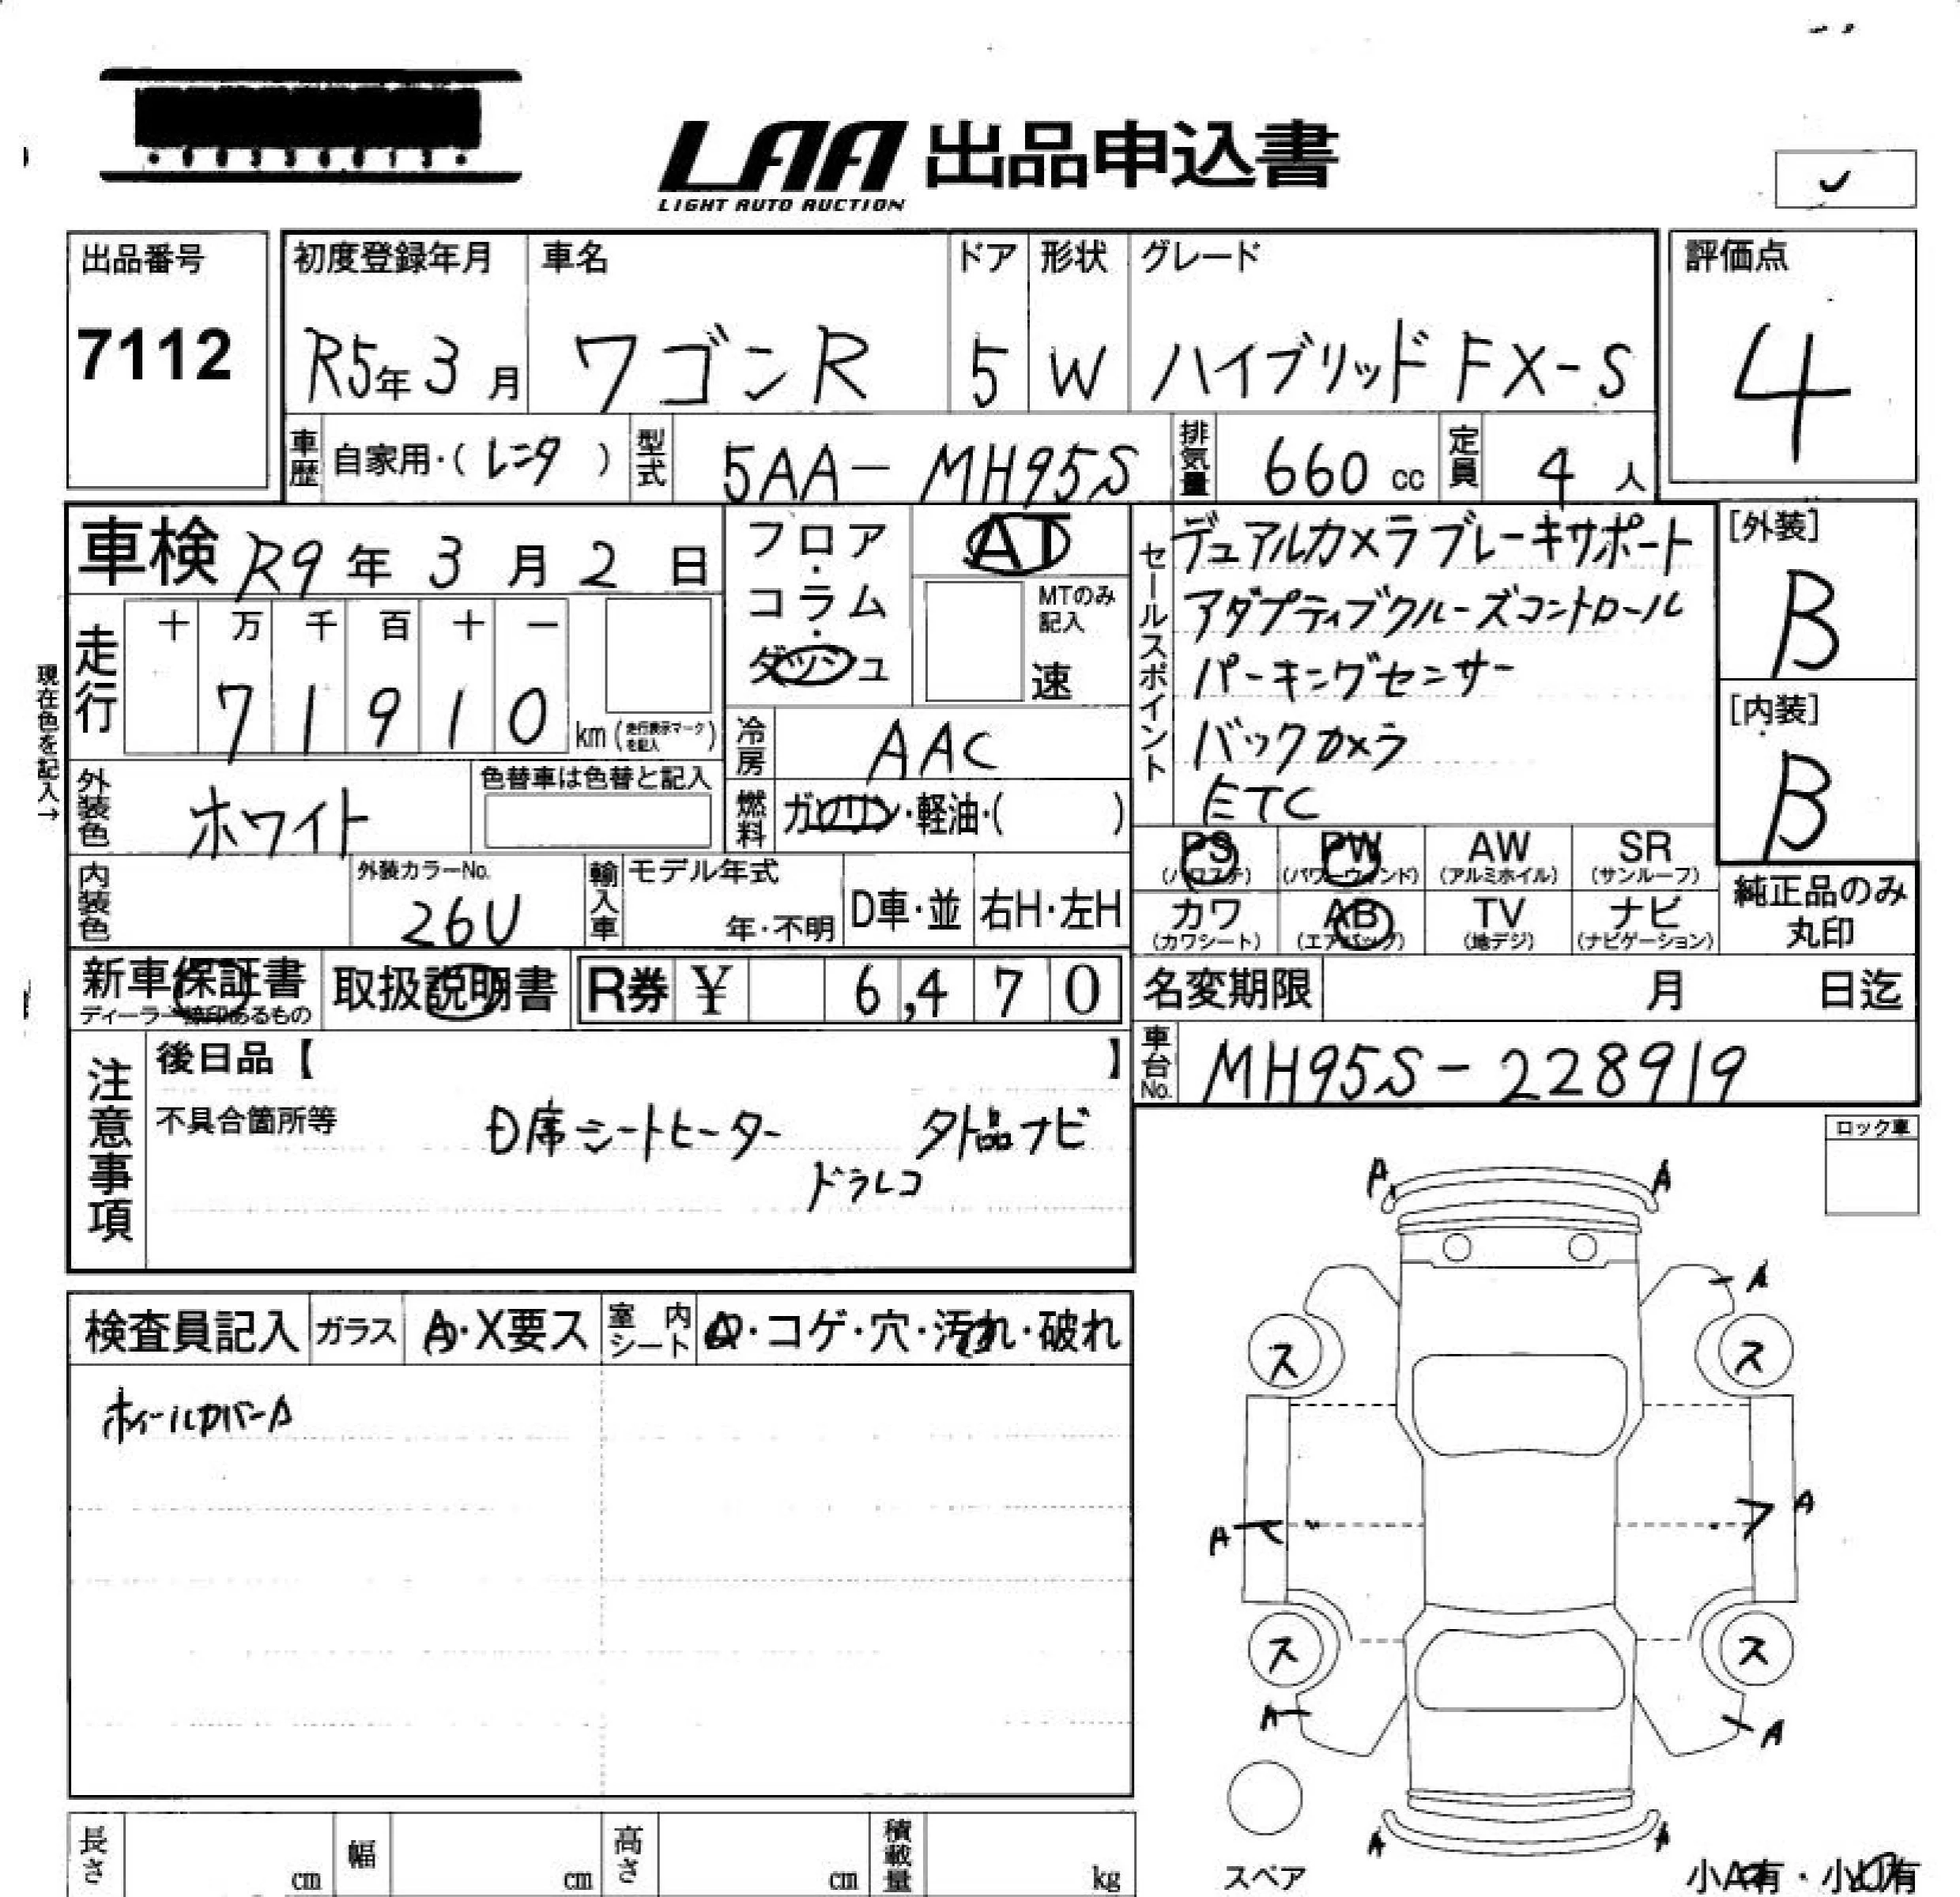 LAA 出品申込書
LIGHT AUTO AUCTION
出品番号
7112
初度登録年月
R5年3月
車名
ワゴンR
ドア
5
形状
W
グレード
ハイブリッド FX-S
評価点
4
車歴 自家用・(レンタ)
型式 5AA-MH95S
排気量 660 cc
定員 4 人
車検 R9年3月2日
フロア・コラム・ダッシュ
AT
MTのみ記入
速
セールスポイント
デュアルカメラブレーキサポート
アダプティブクルーズコントロール
パーキングセンサー
バックカメラ
ETC
[外装]
B
[内装]
B
現在色を記入→
走行
十 万 千 百 十 一
7 1 9 1 0 km (走行表示マークを記入)
冷房 AAC
外装色 ホワイト
色替車は色替と記入
燃料 ガソリン・軽油・( )
内装色
外装カラーNo.
26U
輸入車 モデル年式
年・不明
D車・並
右H・左H
PS AW SR
(パワステ)
PW
(パワーウィンド) (アルミホイル) (サンルーフ)
カワ AB TV ナビ
(カワシート) (エアバッグ) (地デジ) (ナビゲーション)
純正品のみ
丸印
新車保証書
取扱説明書
R券 ¥ 6,470
名変期限 月 日迄
車台No. MH95S-228919
注意事項
後日品【 】
不具合箇所等
D席シートヒーター 外品ナビ
ドラレコ
ロック車
検査員記入
ガラス A・X要ス
室内シート Q・コゲ・穴・汚れ・破れ
ホイールカバーA
A A
A
ス ス
A A
ス ス
A A
A A
スペア
小A有・小凹有
長さ cm
幅 cm
高さ cm
積載量 kg